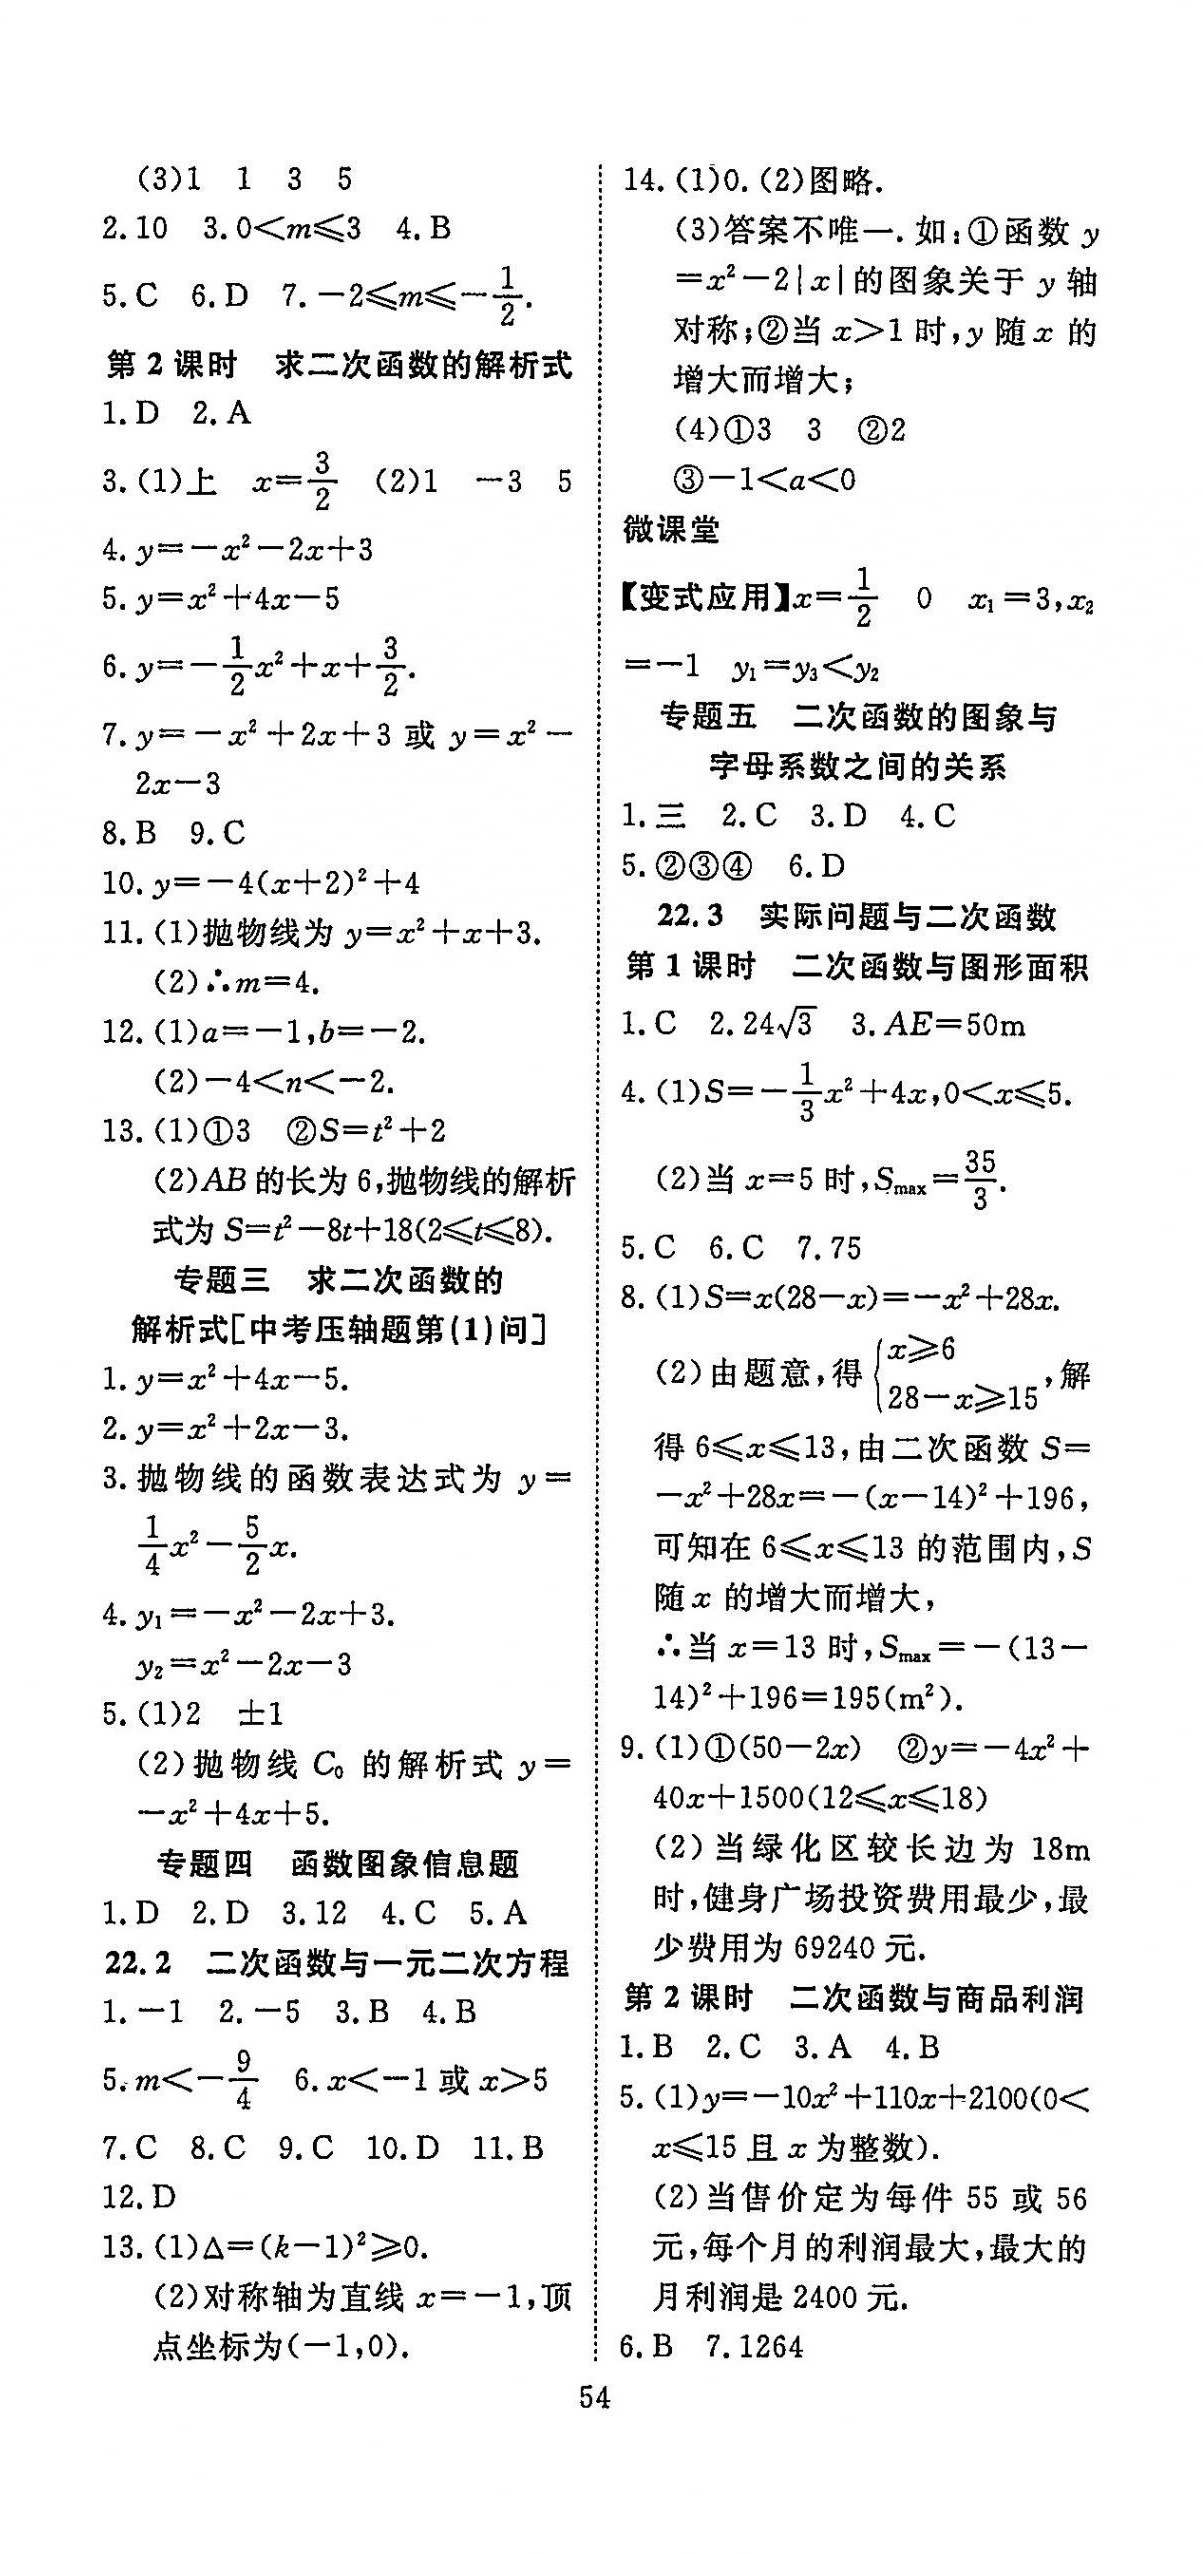 (3)1 1 3 5
2.10 3.0<m≤3 4.B
5.C 6.D 7.-2≤m≤-1/2.
第2课时 求二次函数的解析式
1.D 2.A
3.(1)上 x=3/2 (2)1 -3 5
4.y=-x²-2x+3
5.y=x²+4x-5
6.y=-1/2x²+x+3/2.
7.y=-x²+2x+3或y=x²-
2x-3
8.B 9.C
10.y=-4(x+2)²+4
11.(1)抛物线为y=x²+x+3.
(2)∴m=4.
12.(1)a=-1,b=-2.
(2)-4<n<-2.
13.(1)①3 ②S=t²+2
(2)AB的长为6,抛物线的解析
式为S=t²-8t+18(2≤t≤8).
专题三 求二次函数的
解析式[中考压轴题第(1)问]
1.y=x²+4x-5.
2.y=x²+2x-3.
3.抛物线的函数表达式为y=
1/4x²-5/2x.
4.y₁=-x²-2x+3.
y₂=x²-2x-3
5.(1)2 ±1
(2)抛物线C₀的解析式y=
-x²+4x+5.
专题四 函数图象信息题
1.D 2.D 3.12 4.C 5.A
22.2 二次函数与一元二次方程
1.-1 2.-5 3.B 4.B
5.m<-9/4 6.x<-1或x>5
7.C 8.C 9.C 10.D 11.B
12.D
13.(1)Δ=(k-1)²≥0.
(2)对称轴为直线x=-1,顶
点坐标为(-1,0).
14.(1)0.(2)图略.
(3)答案不唯一.如:①函数y
=x²-2|x|的图象关于y轴
对称;②当x>1时,y随x的
增大而增大;
(4)①3 3 ②2
③-1<a<0
微课堂
【变式应用】x=1/2 0 x₁=3,x₂
=-1 y₁=y₃<y₂
专题五 二次函数的图象与
字母系数之间的关系
1.三 2.C 3.D 4.C
5.②③④ 6.D
22.3 实际问题与二次函数
第1课时 二次函数与图形面积
1.C 2.24√3 3.AE=50m
4.(1)S=-1/3x²+4x,0<x≤5.
(2)当x=5时,Smax=35/3.
5.C 6.C 7.75
8.(1)S=x(28-x)=-x²+28x.
(2)由题意,得{x≥6
28-x≥15,解
得6≤x≤13,由二次函数S=
-x²+28x=-(x-14)²+196,
可知在6≤x≤13的范围内,S
随x的增大而增大,
∴当x=13时,Smax=-(13-
14)²+196=195(m²).
9.(1)①(50-2x) ②y=-4x²+
40x+1500(12≤x≤18)
(2)当绿化区较长边为18m
时,健身广场投资费用最少,最
少费用为69240元.
第2课时 二次函数与商品利润
1.B 2.C 3.A 4.B
5.(1)y=-10x²+110x+2100(0<
x≤15且x为整数).
(2)当售价定为每件55或56
元,每个月的利润最大,最大的
月利润是2400元.
6.B 7.1264
54